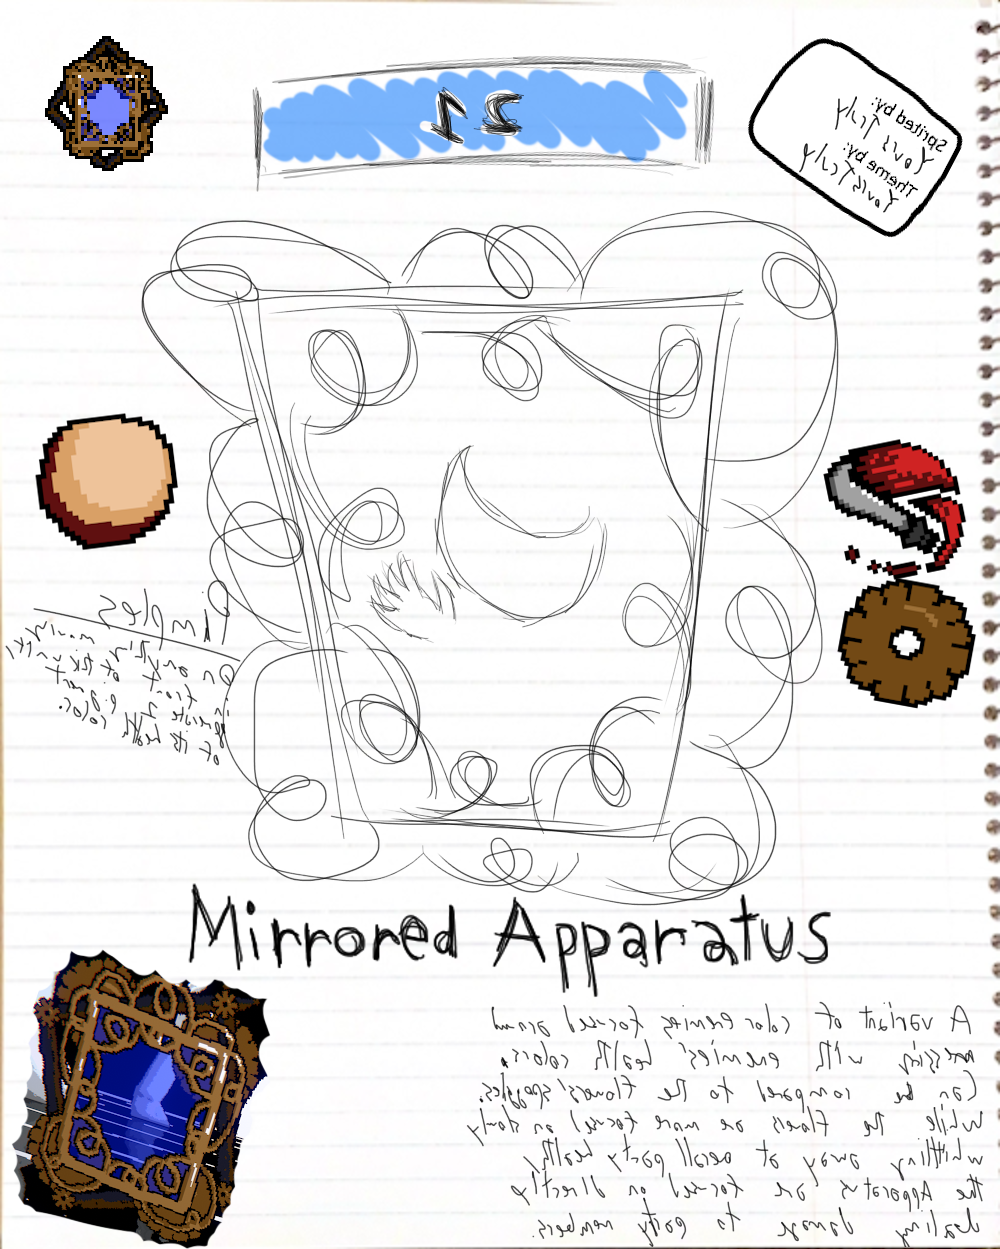 21
Sprited by:
Yours Truly
Theme by:
Yours Truly
Pimples
On anything moving
in front of this unit,
generate 2 pigment
of its health color.
Mirrored Apparatus
A variant of color enemies focused around
messing with enemies' health colors.
Can be compared to the flowers/spoggles.
While the flowers are more focused on slowly
whittling away at overall party health,
the Apparatus are focused on directly
dealing damage to party members.